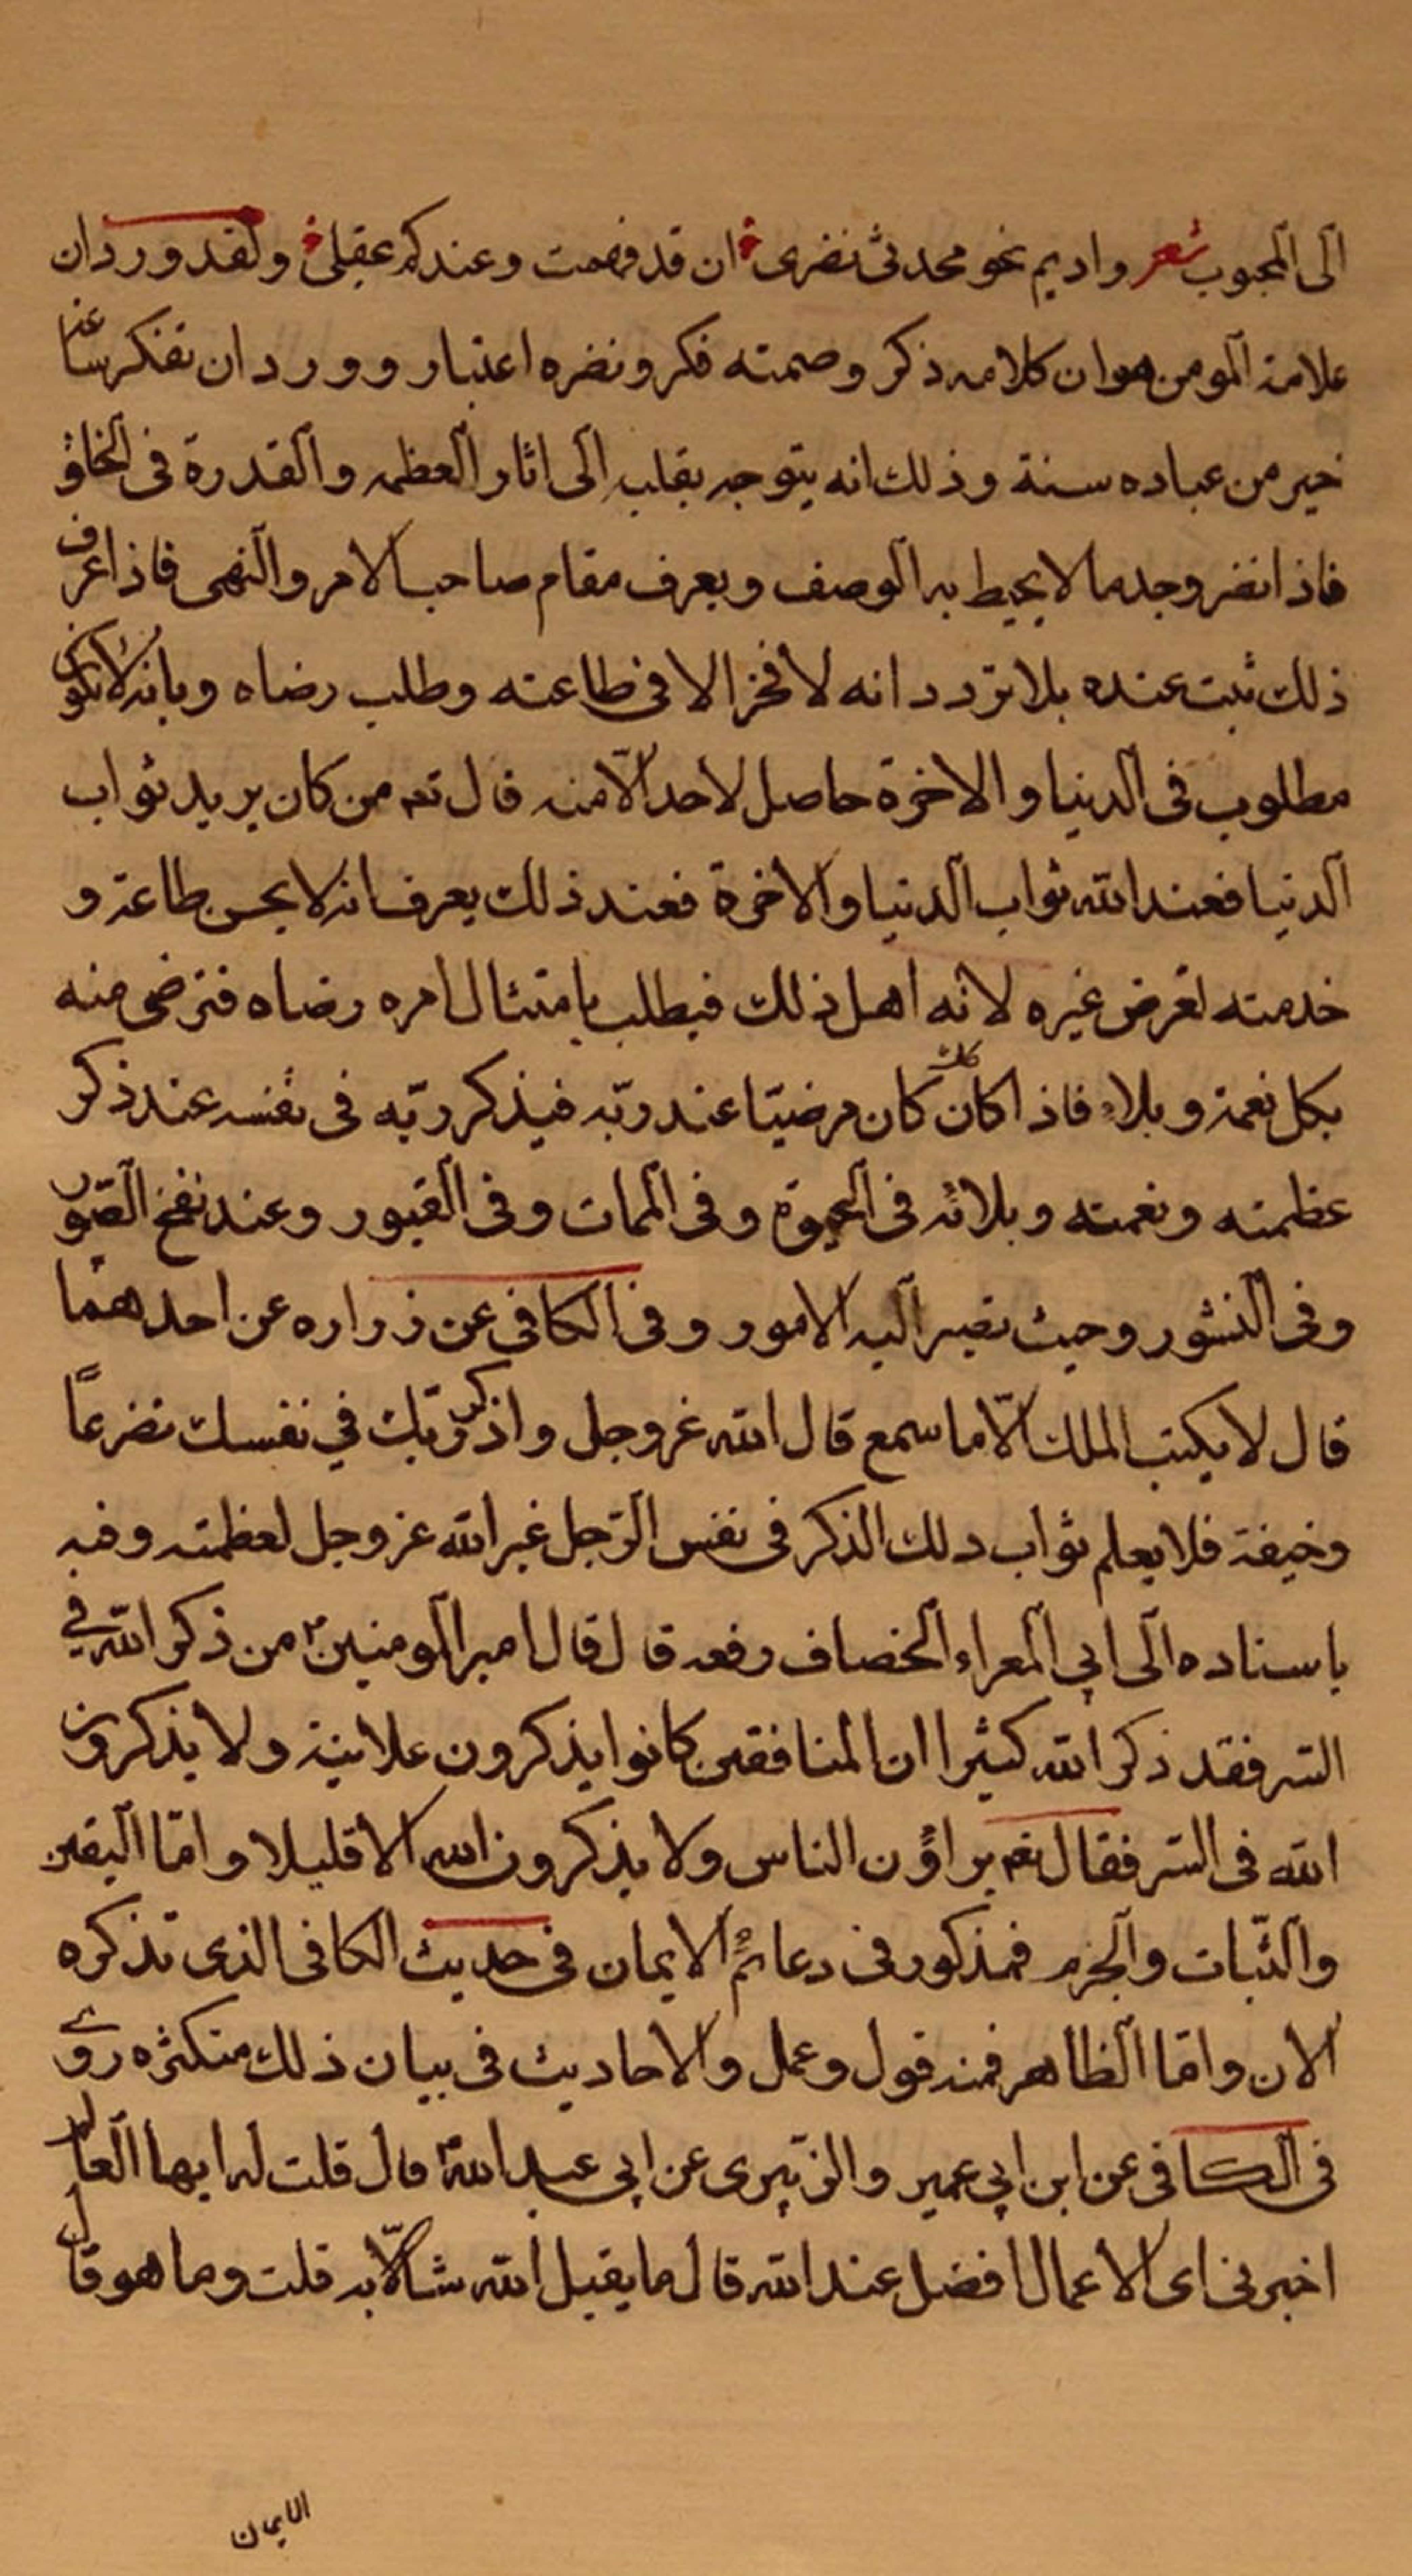 الى المحبوب شعر واديم نحو محدثى نضرى ان قد فهمت وعندكم عقلى ولقد ورد ان
علامة المومن هو ان كلامه ذكر وصمته فكر ونضره اعتبار وورد ان تفكر ساعة
خير من عباده سنة وذلك انه يتوجه بقلبه الى اثار العظمه والقدرة فى الخلق
فاذا نضر وجد ما لا يحيط به الوصف ويعرف مقام صاحب الامر والنهى فاذا عرف
ذلك ثبت عنده بلا تردد انه لا فخر الا فى طاعته وطلب رضاه وبانه لا يكون
مطلوب فى الدنيا والاخرة حاصل لاحد الّا منه قال تعه من كان يريد ثواب
الدنيا فعند الله ثواب الدنيا والاخرة فعند ذلك يعرف انه لا يحسن طاعة و
خدمته لغرض غيره لانه اهل ذلك فيطلب بامتثال امره رضاه فترضى منه
بكل نعمة وبلاء فاذا كان كان كان مرضيّا عند ربّه فيذكر ربّه فى نفسه عند ذكر
عظمته ونعمته وبلائه فى الحيوة وفى الممات وفى القبور وعند نفخ الصّور
وفى النشور وحيث تصير اليه الامور وفى الكافى عن زراره عن احدهما
قال لا يكتب الملك الّا ما سمع قال الله عز وجل واذكر ربّك في نفسك تضرعاً
وخيفة فلا يعلم ثواب دلك الذكر فى نفس الرّجل غير الله عز وجل لعظمته وفيه
باسناده الى ابي المعراء الخصاف رفعه قال قال امير المومنين ع من ذكر الله في
السّر فقد ذكر الله كثيرا ان المنافقين كانوا يذكرون علانية ولا يذكرون
الله فى السّر فقال تعه يراؤن الناس ولا يذكرون الله الا قليلا وامّا اليقين
والثّبات والجزم فمذكور فى دعائم الايمان فى حديث الكافى الذى تذكره
الان وامّا الظاهر فمنه قول وعمل والاحاديث فى بيان ذلك متكثره روى
فى الكافى عن ابن ابي عمير والزّبيرى عن ابي عبد الله ع قال قلت له ايها العالم
اخبرنى اى الاعمال افضل عند الله قال ما يقبل الله شيئا الّا به قلت وما هو قال
الايمان